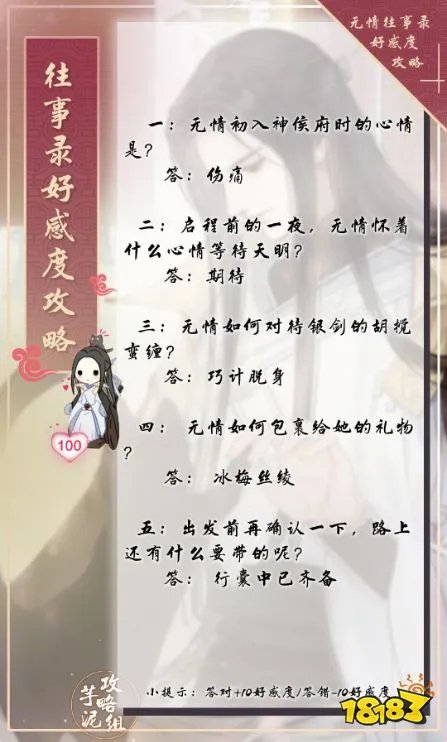 无情往事录
好感度
攻略
往事录好感度攻略
一：无情初入神侯府时的心情
是？
答：伤痛
二：启程前的一夜，无情怀着
什么心情等待天明？
答：期待
三：无情如何对待银剑的胡搅
蛮缠？
答：巧计脱身
四：无情如何包裹给她的礼物
？
答：冰梅丝绫
五：出发前再确认一下，路上
还有什么要带的呢？
答：行囊中已齐备
100
小提示：答对+10好感度/答错-10好感度
攻略组
芋泥
18183